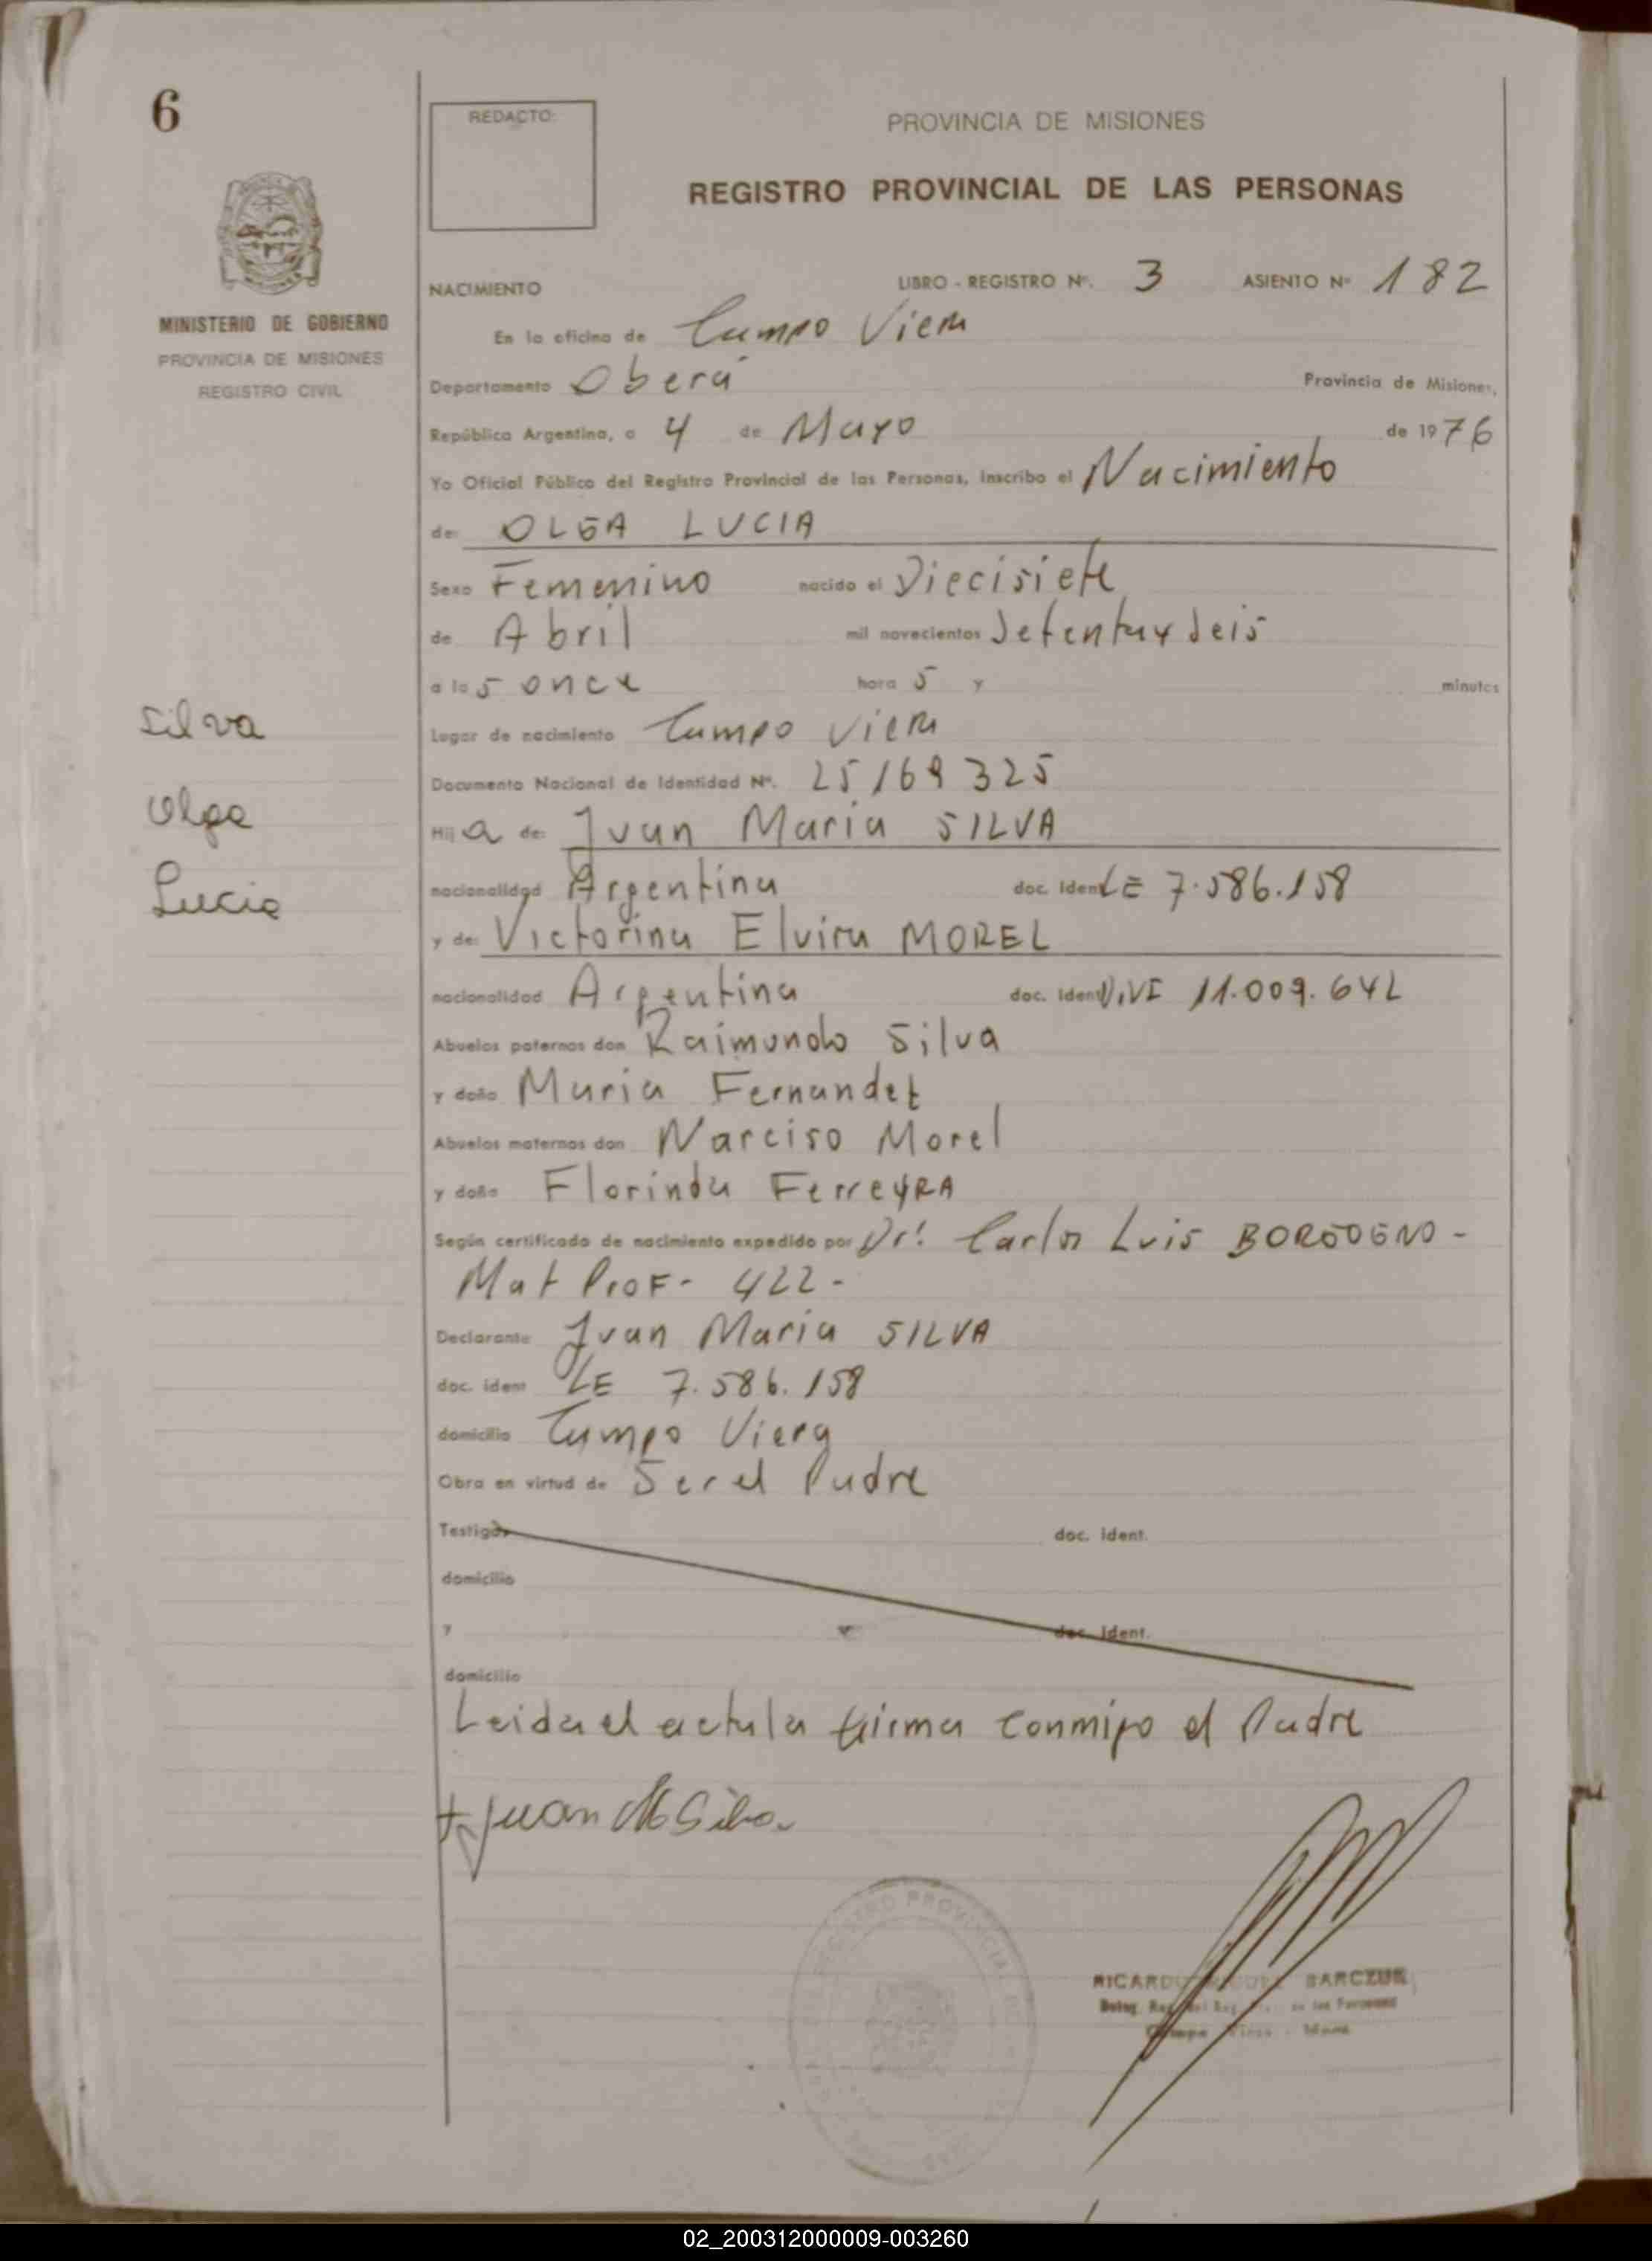 6
REDACTO:
PROVINCIA DE MISIONES
REGISTRO PROVINCIAL DE LAS PERSONAS
MINISTERIO DE GOBIERNO
PROVINCIA DE MISIONES
REGISTRO CIVIL
NACIMIENTO LIBRO - REGISTRO Nº. 3 ASIENTO Nº 182
En la oficina de Campo Viera
Departamento Oberá Provincia de Misiones,
República Argentina, a 4 de Mayo de 1976
Yo Oficial Público del Registro Provincial de las Personas, inscribo el Nacimiento
de: OLGA LUCIA
Sexo Femenino nacido el Diecisiete
de Abril mil novecientos Setenta y Seis
a las once hora s y minutos
Lugar de nacimiento Campo Viera
Documento Nacional de Identidad Nº. 25169325
Hija de: Juan Maria SILVA
nacionalidad Argentina doc. Ident LE 7.586.158
y de: Victorina Elvira MOREL
nacionalidad Argentina doc. Ident 11.009.642
Abuelos paternos don Raimundo Silva
y doña Maria Fernandez
Abuelos maternos don Narciso Morel
y doña Florinda Ferreyra
Según certificado de nacimiento expedido por Dr. Carlos Luis
Mat Prof- 422-
Declarante Juan Maria SILVA
doc. ident LE 7.586.158
domicilio Campo Viera
Obra en virtud de Ser el Padre
Testigos doc. ident.
domicilio
y doc. ident.
domicilio
Leida el acta la firma conmigo el Padre
Juan M Silva
Silva
Olga
Lucia
REGISTRO PROVINCIAL
RICARDO BARCZUK
02_200312000009-003260